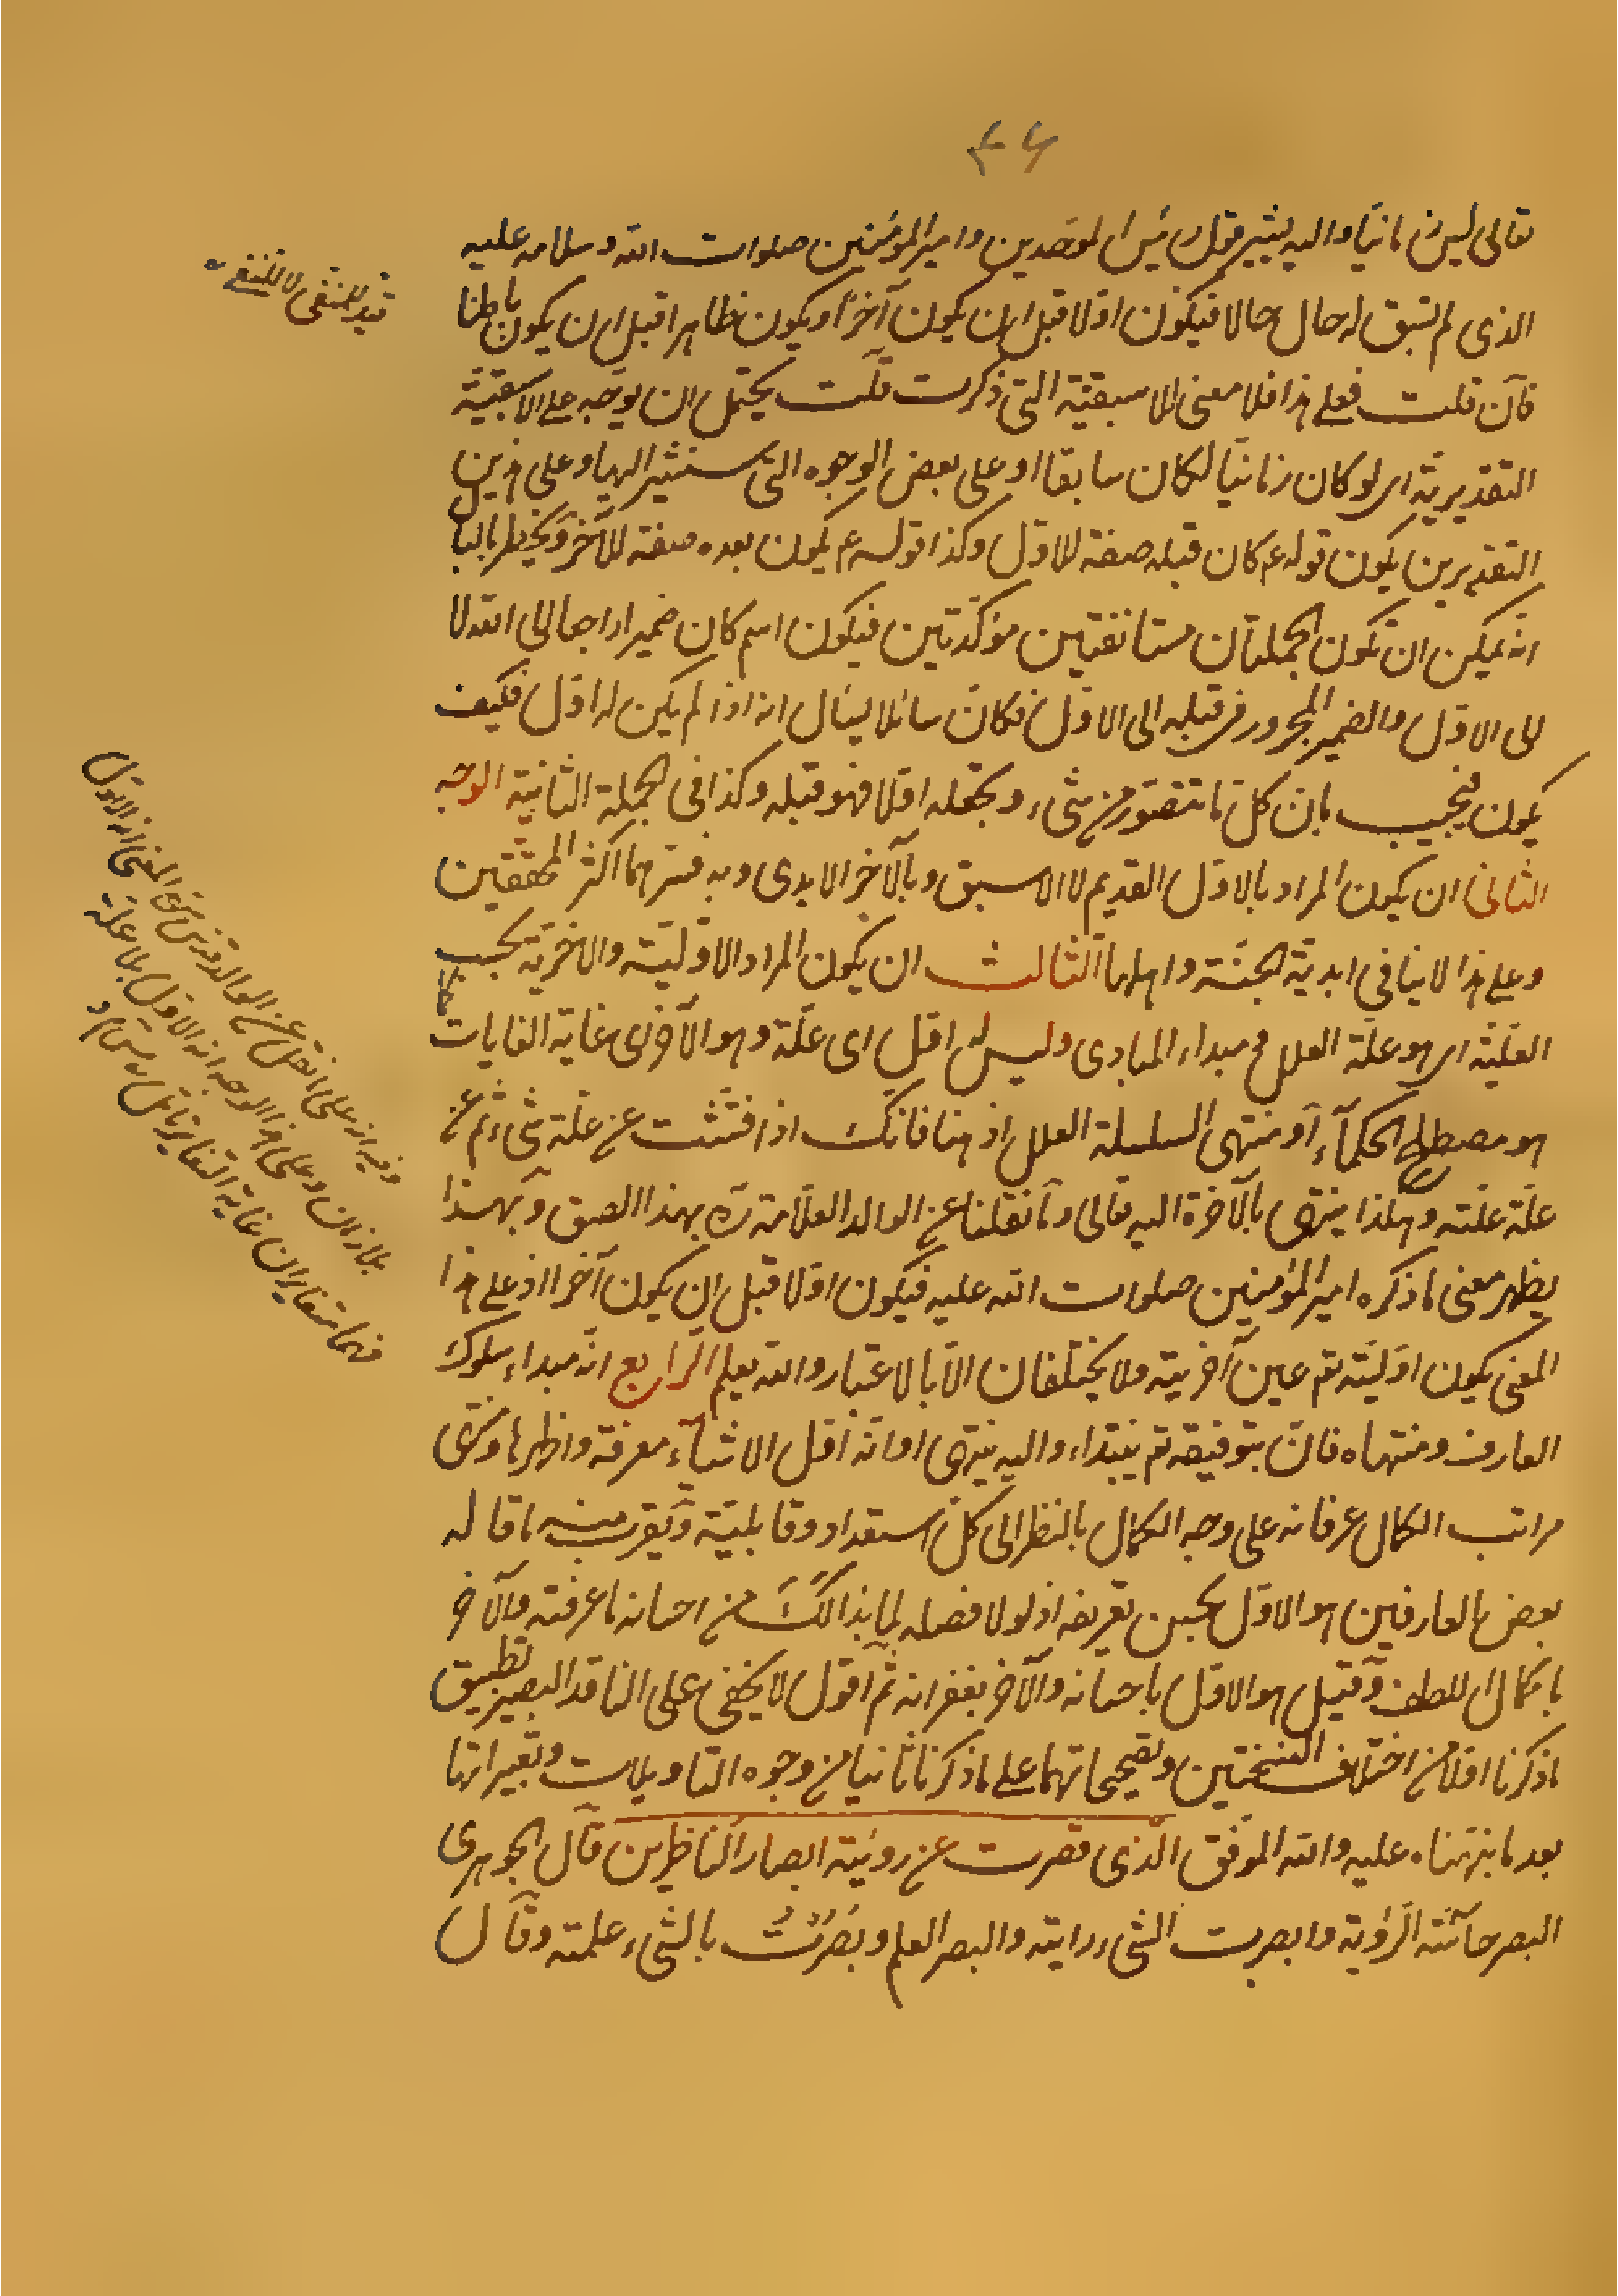 ۴۶
تعالى ليس زمانيّا واليه يشير قول رئيس الموحّدين وامير المؤمنين صلوات الله وسلامه عليه
الذى لم تسبق له حال حالا فيكون اوّلا قبل ان يكون آخرا ويكون ظاهرا قبل ان يكون باطنا
فآن قلت فعلى هذا فلا معنى للاسبقيّة التى ذكرت قلت يحتمل ان يوجّه على الاسبقيّة
التقديريّة اى لو كان زمانيّا لكان سابقا او على بعض الوجوه التى سنشير اليها وعلى هذين
التقديرين يكون قوله ع كان قبله صفة للاوّل وكذا قوله ع يكون بعده صفة للآخر ويخطر بالبا
انّه يمكن ان تكون الجملتان مستانفتين مؤكّدتين فيكون اسم كان ضميرا راجعا الى الله لا
الى الاوّل والضمير المجرور فى قبله الى الاوّل فكانّ سائلا يسال انه اذا لم يكن له اوّل فكيف
يكون فيجيب بان كلّ ما تتصوّر من شىء وتجعله اوّلا فهو قبله وكذا فى الجملة الثانية الوجه
الثانى ان يكون المراد بالاوّل القديم لا الاسبق وبالآخر الابدى وبه فسّرهما اكثر المحققين
وعلى هذا لا ينافى ابديّة الجنّة واهلها الثالث ان يكون المراد الاوّليّة والاخريّة بحسب
العليّة اى هو علّة العلل ومبداء المبادى وليس له اوّل اى علّة وهو الآخر اى غاية الغايات كما
هو مصطلح الحكمآء او منتهى السلسلة العلل اذ هنا فانك اذا فتّشت عن علّة شىء ثم عن
علّة علّته وهكذا ينتهى بالآخرة اليه تعالى وما نقلنا عن الوالد العلّامة ره بهذا الصق وبهذا
يظهر معنى ما ذكره امير المؤمنين صلوات الله عليه فيكون اوّلا قبل ان يكون آخرا اذ على هذا
المعنى يكون اوّليّته تم عين آخريته ولا يختلفان الّا بالاعتبار والله يعلم الرابع انّه مبداء سلوك
العارف ومنتهاه فانّ بتوفيقه تم يبتداء واليه ينتهى او انّه اوّل الاشيآء معرفة واظهرها ومنتهى
مراتب الكمال عرفانه على وجه الكمال بالنظر الى كلّ استعداد وقابليّة ويقرب منه ما قاله
بعض العارفين هو الاوّل بحسن تعريفه اذ لولا فضله لما بذا لك من احسانه ما عرفته والآخر
باكمال اللطف وقيل هو الاوّل باحسانه والآخر بغفرانه ثم اقول لا يخفى على الناقد البصير تطبيق
ما ذكرنا اوّلا من اختلاف النسختين وتصحيحاتهما على ما ذكرنا ثانيا من وجوه التاويلات وتعبيراتها
بعد ما نبّهناه عليه والله الموفّق الّذى قصرت عن رؤيته ابصار الناظرين قال الجوهرى
البصر حاسّة الرّؤية وابصرت الشىء رايته والبصر العلم وبَصُرْتُ بالشىء علمته وقال
قيد للمنفى لا للنفى
وفيه انه على ما نقل عن الوالد قدس سره المعنى انه الاوّل
بلا زمان وعلى هذا الوجه انه الاوّل بلا علّة
فهما متغايران غاية التغاير